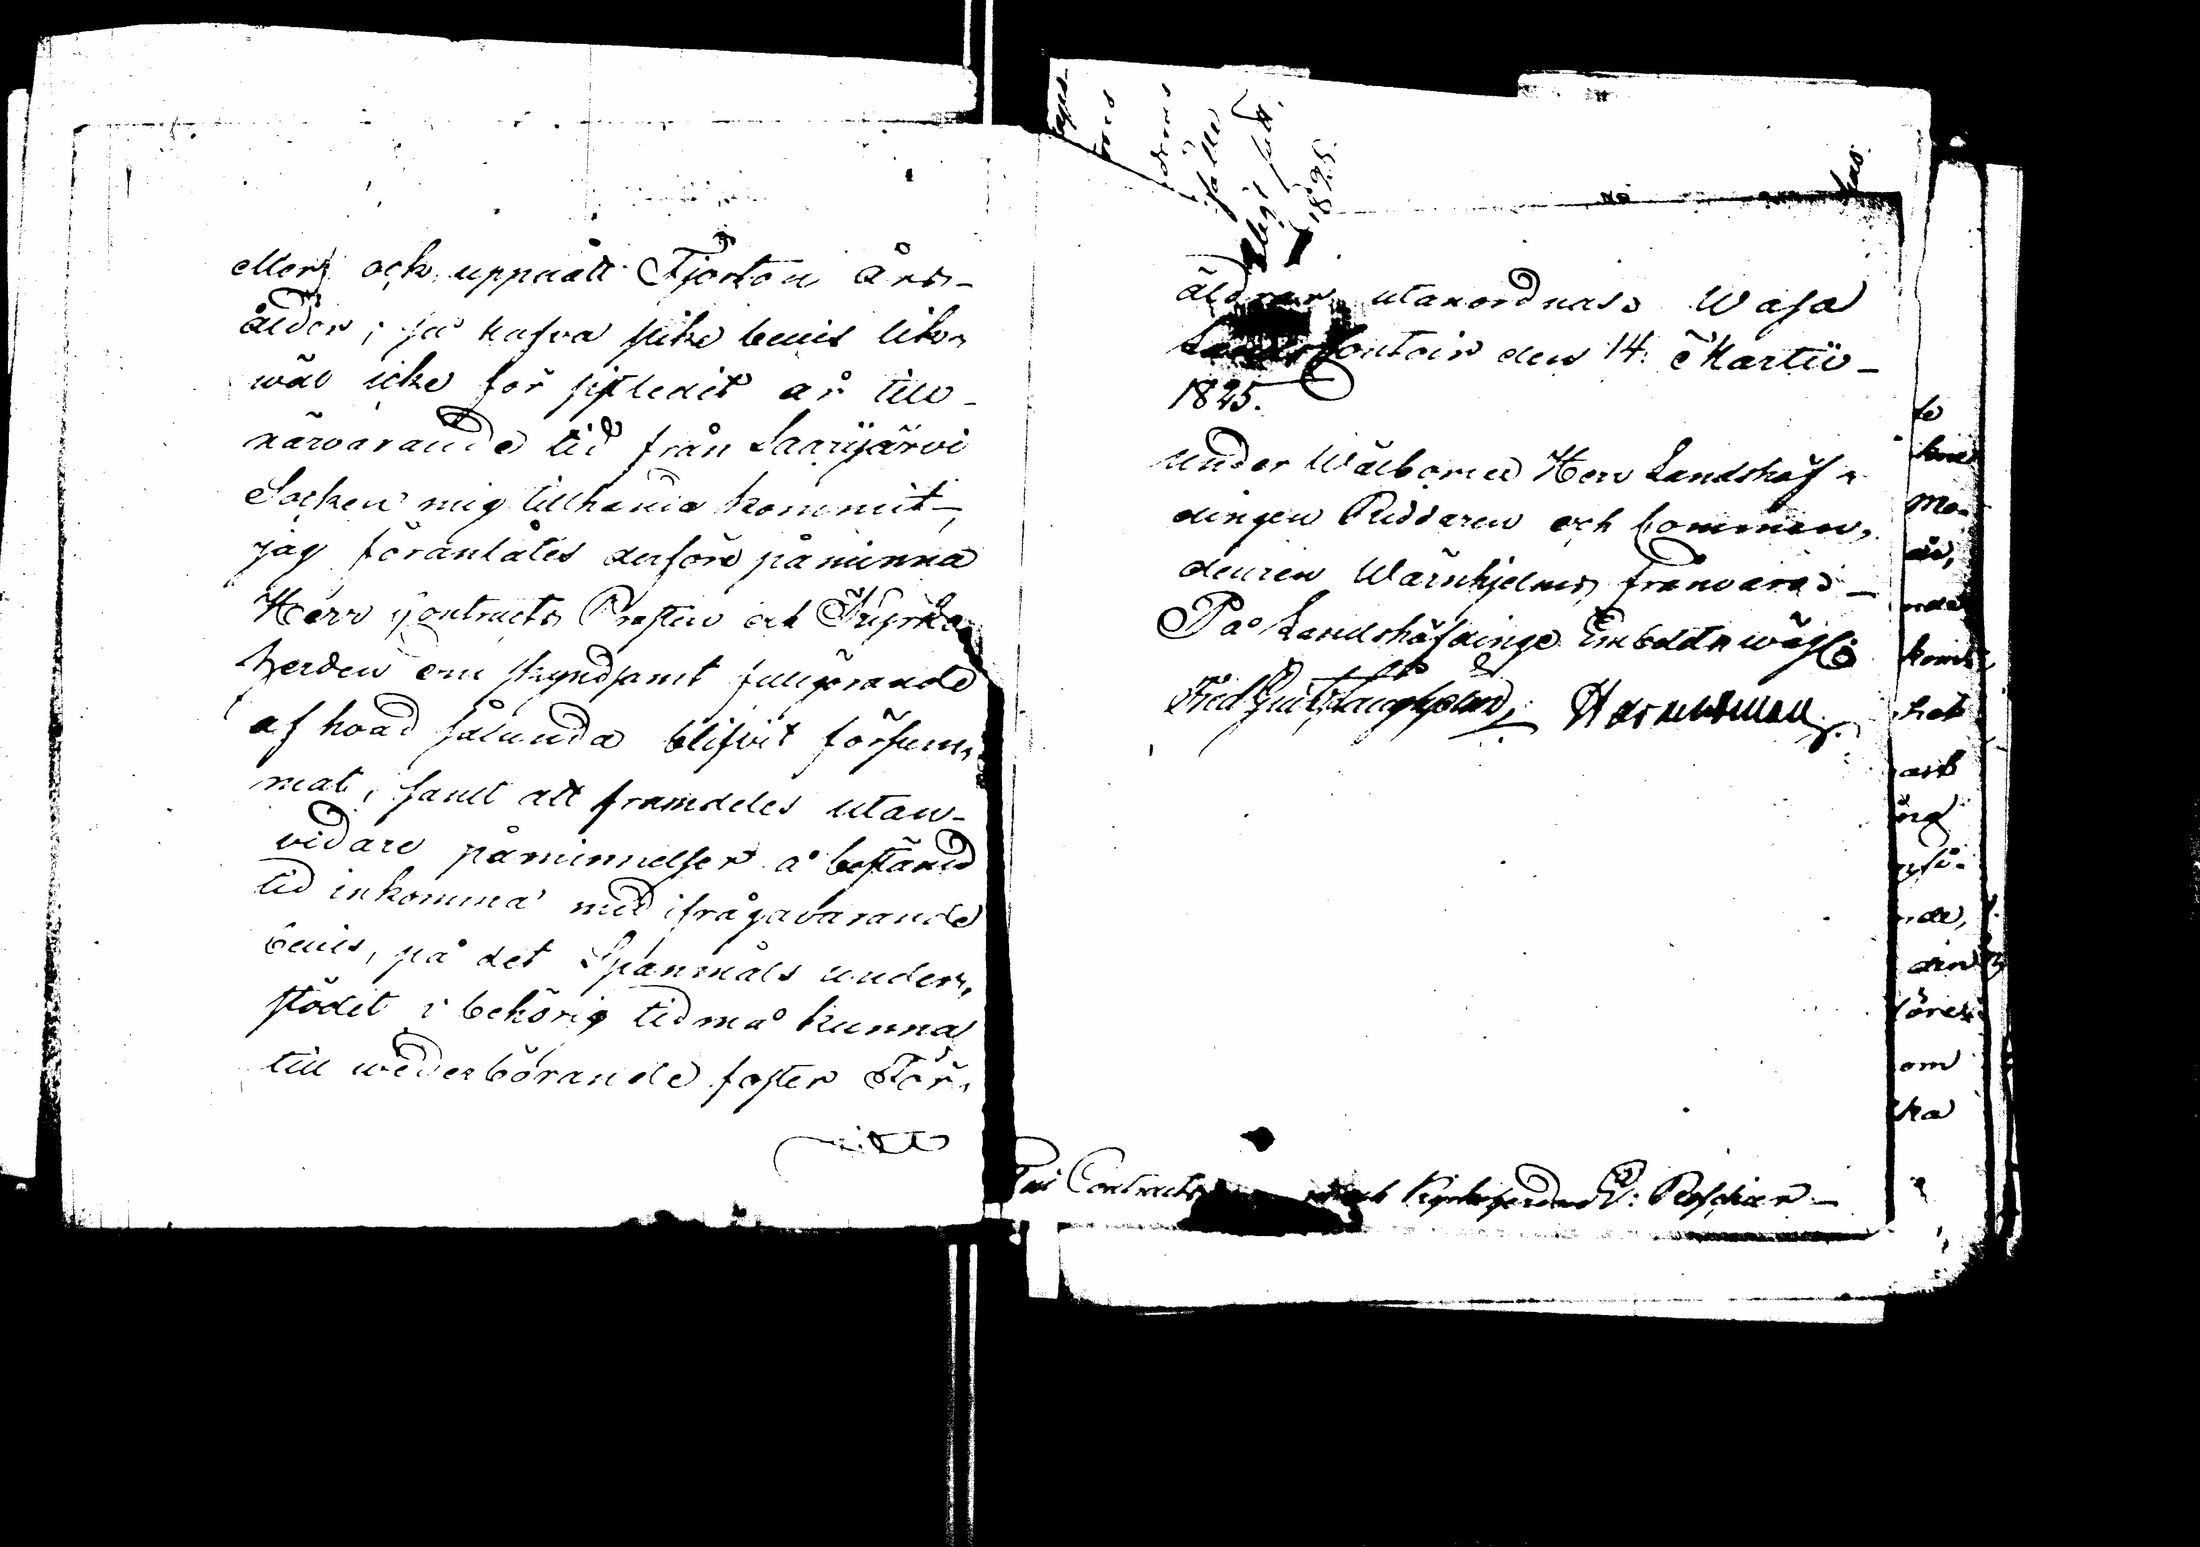 eller ock uppnått Fjorton års-
ålder; så hafva slike bevis lik-
wäl icke för sistledit år till-
närvarande tid från Saarijärvi
Socken mig tillhanda kommit,
jag föranlåtes derföre påminna
Herr Contracts Prosten och Kyrko
herden om skyndsamt fullgörande
af hvad sålunda blifvit försum-
mat, samt att framdeles utan-
vidare påminnelser å bestämd
tid inkomma med ifrågavarande
bevis, på det Spanmåls under-
stödet i behörig tid må kunna
till wederbörande foster För-
äldrar utanordnas. Wasa
Lands Contoir den 14. Martii
1825.
Under Wälborne Herr Landshöf-
dingen Riddaren och Commen-
deuren Wärnhjelms frånvaro
På Landshöfdinge Embetets wägr
Contracts och Kyrkoherden Roschier
fälle
1825.